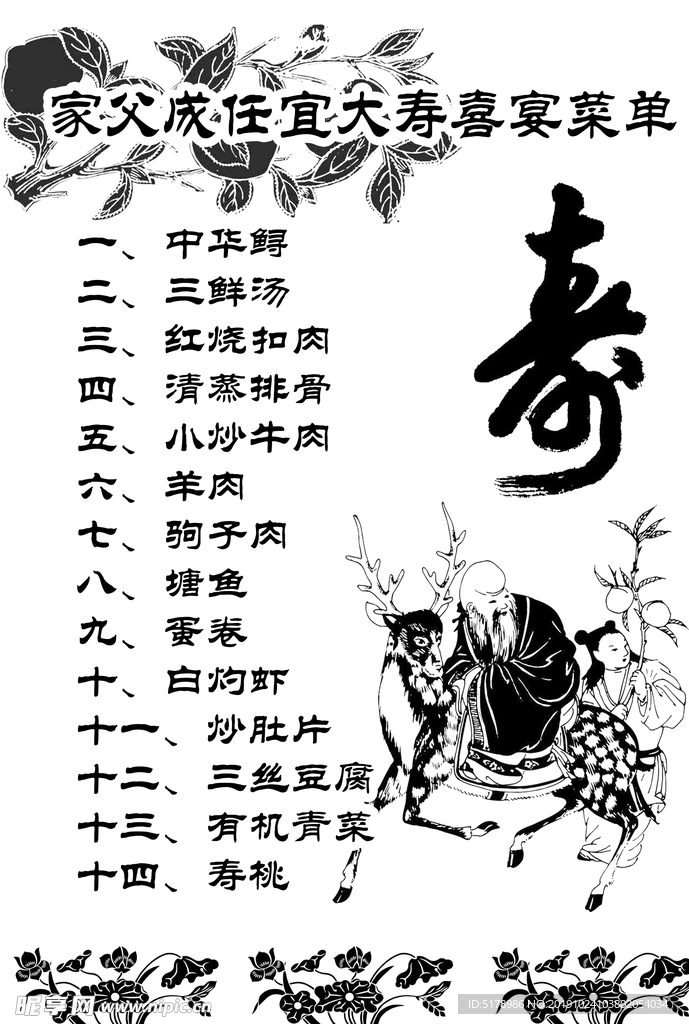 家父成任宜大寿喜宴菜单
一、中华鲟
二、三鲜汤
三、红烧扣肉
四、清蒸排骨
五、小炒牛肉
六、羊肉
七、驹子肉
八、塘鱼
九、蛋卷
十、白灼虾
十一、炒肚片
十二、三丝豆腐
十三、有机青菜
十四、寿桃
寿
昵享网 www.nipic.cn
ID:5178986 NO:20191024103802054034